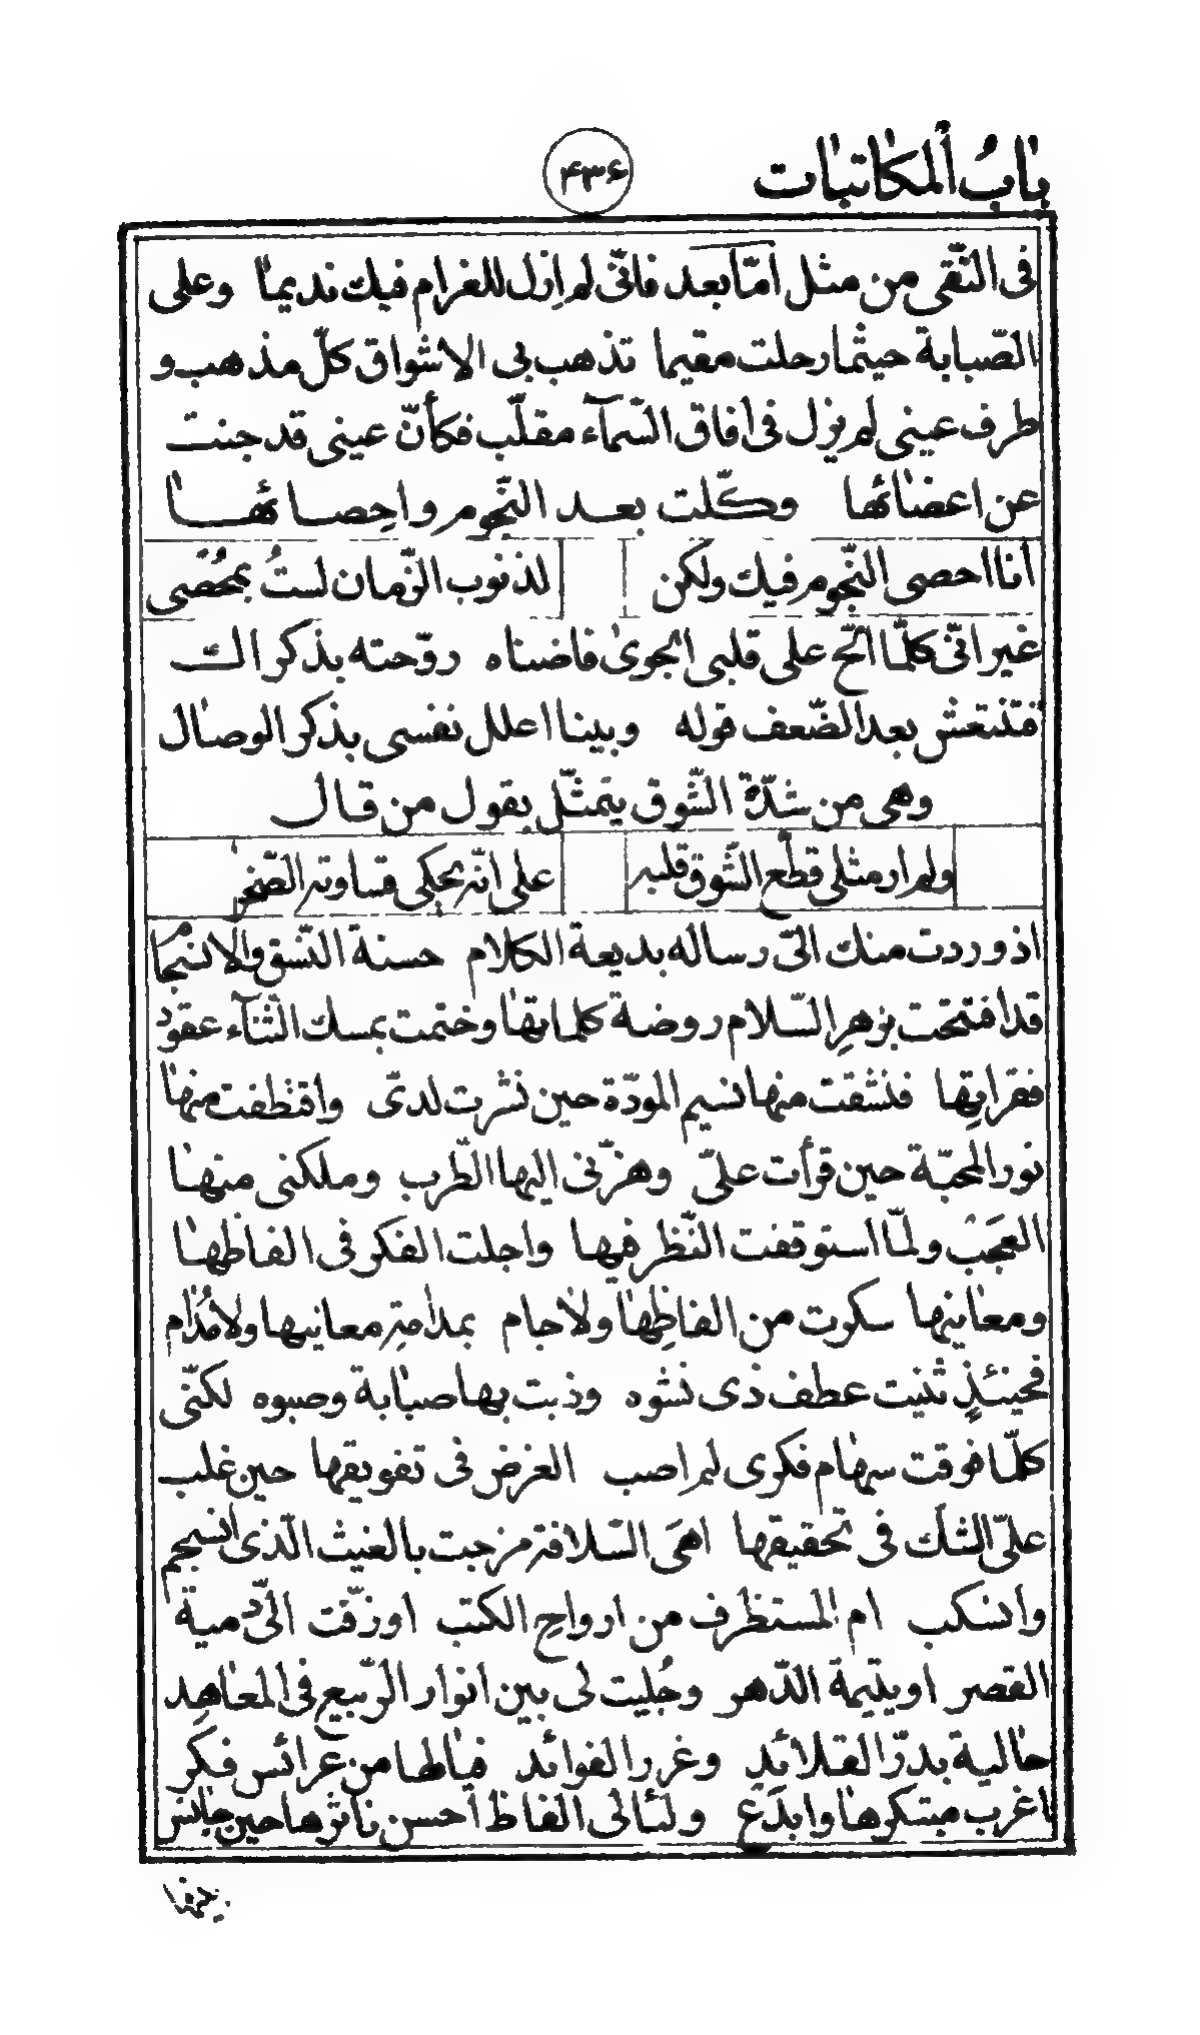 بٰابُ ٱلمكٰاتبٰات ۴۳۶
فى التّقى من مثل امّا بعد فانّى لم ازل للغرام فيك نديمٰا وعلى
الصّبابة حيثما رحلت مقيما تذهب بى الاشواق كلّ مذهب و
طرف عينى لم يزل فى افاق السّمآء مقلّب فكأنّ عينى قد جنت
عن اعضٰائها وكلّت بعد النّجوم واحصائهٰا
انا احصى النّجوم فيك ولكن لذنوب الزّمان لستُ بمُحْصى
غير انّى كلّما الحّ على قلبى الجوىٰ فاضناه روّحته بذكراك
فتنتعش بعد الضّعف قوله وبينا اعلل نفسى بذكر الوصٰال
وهى من شدّة الشّوق يتمثّل بقول من قال
ولم ار مثلى قطّع الشّوق قلبه على انّه يحكى قساوته الصّخر
اذ وردت منك الىّ رساله بديعة الكلام حسنة النّسق والانسجام
قد افتتحت بزهرِ السّلام روضة كلماتهٰا وختمت بمسك الثّنآء عقود
فقراتِها فنشقت منها نسيم المودّة حين نشرت لدىّ واقتطفت منهٰا
نور المحبّة حين قرأت علىّ وهزّنى اليها الطّرب وملكنى منهٰا
العَجَبُ ولمّا استوقفت النّظر فيها واجلت الفكر فى الفاظهٰا
ومعٰانيها سكرت من الفاظِهٰا ولاجام بمدامةِ معانيها ولامُدٰام
فحينئذٍ ثنيت عطف ذى نشوه وذبت بها صبٰابة وصبوه لكنّى
كلّما فوقت سهٰام فكرى لم اصب الغرض فى تفويقها حين غلب
علىّ الشّك فى تحقيقها اهَى السّلافة مزجت بالغيث الّذى انسجم
وانسكب ام المستظرف من ارواحِ الكتب او زفّت الىّ دمية
القصر او يتيمة الدّهر وجُليت لى بين انوار الرّبيع فى المعٰاهِد
حٰالية بدرّ القلائدِ وغرر الفوائد فيٰالها من عرائس فكر
ما اغرب مبتكرهٰا وابدع ولئالى الفاظ احسن ناثرها حين جانس